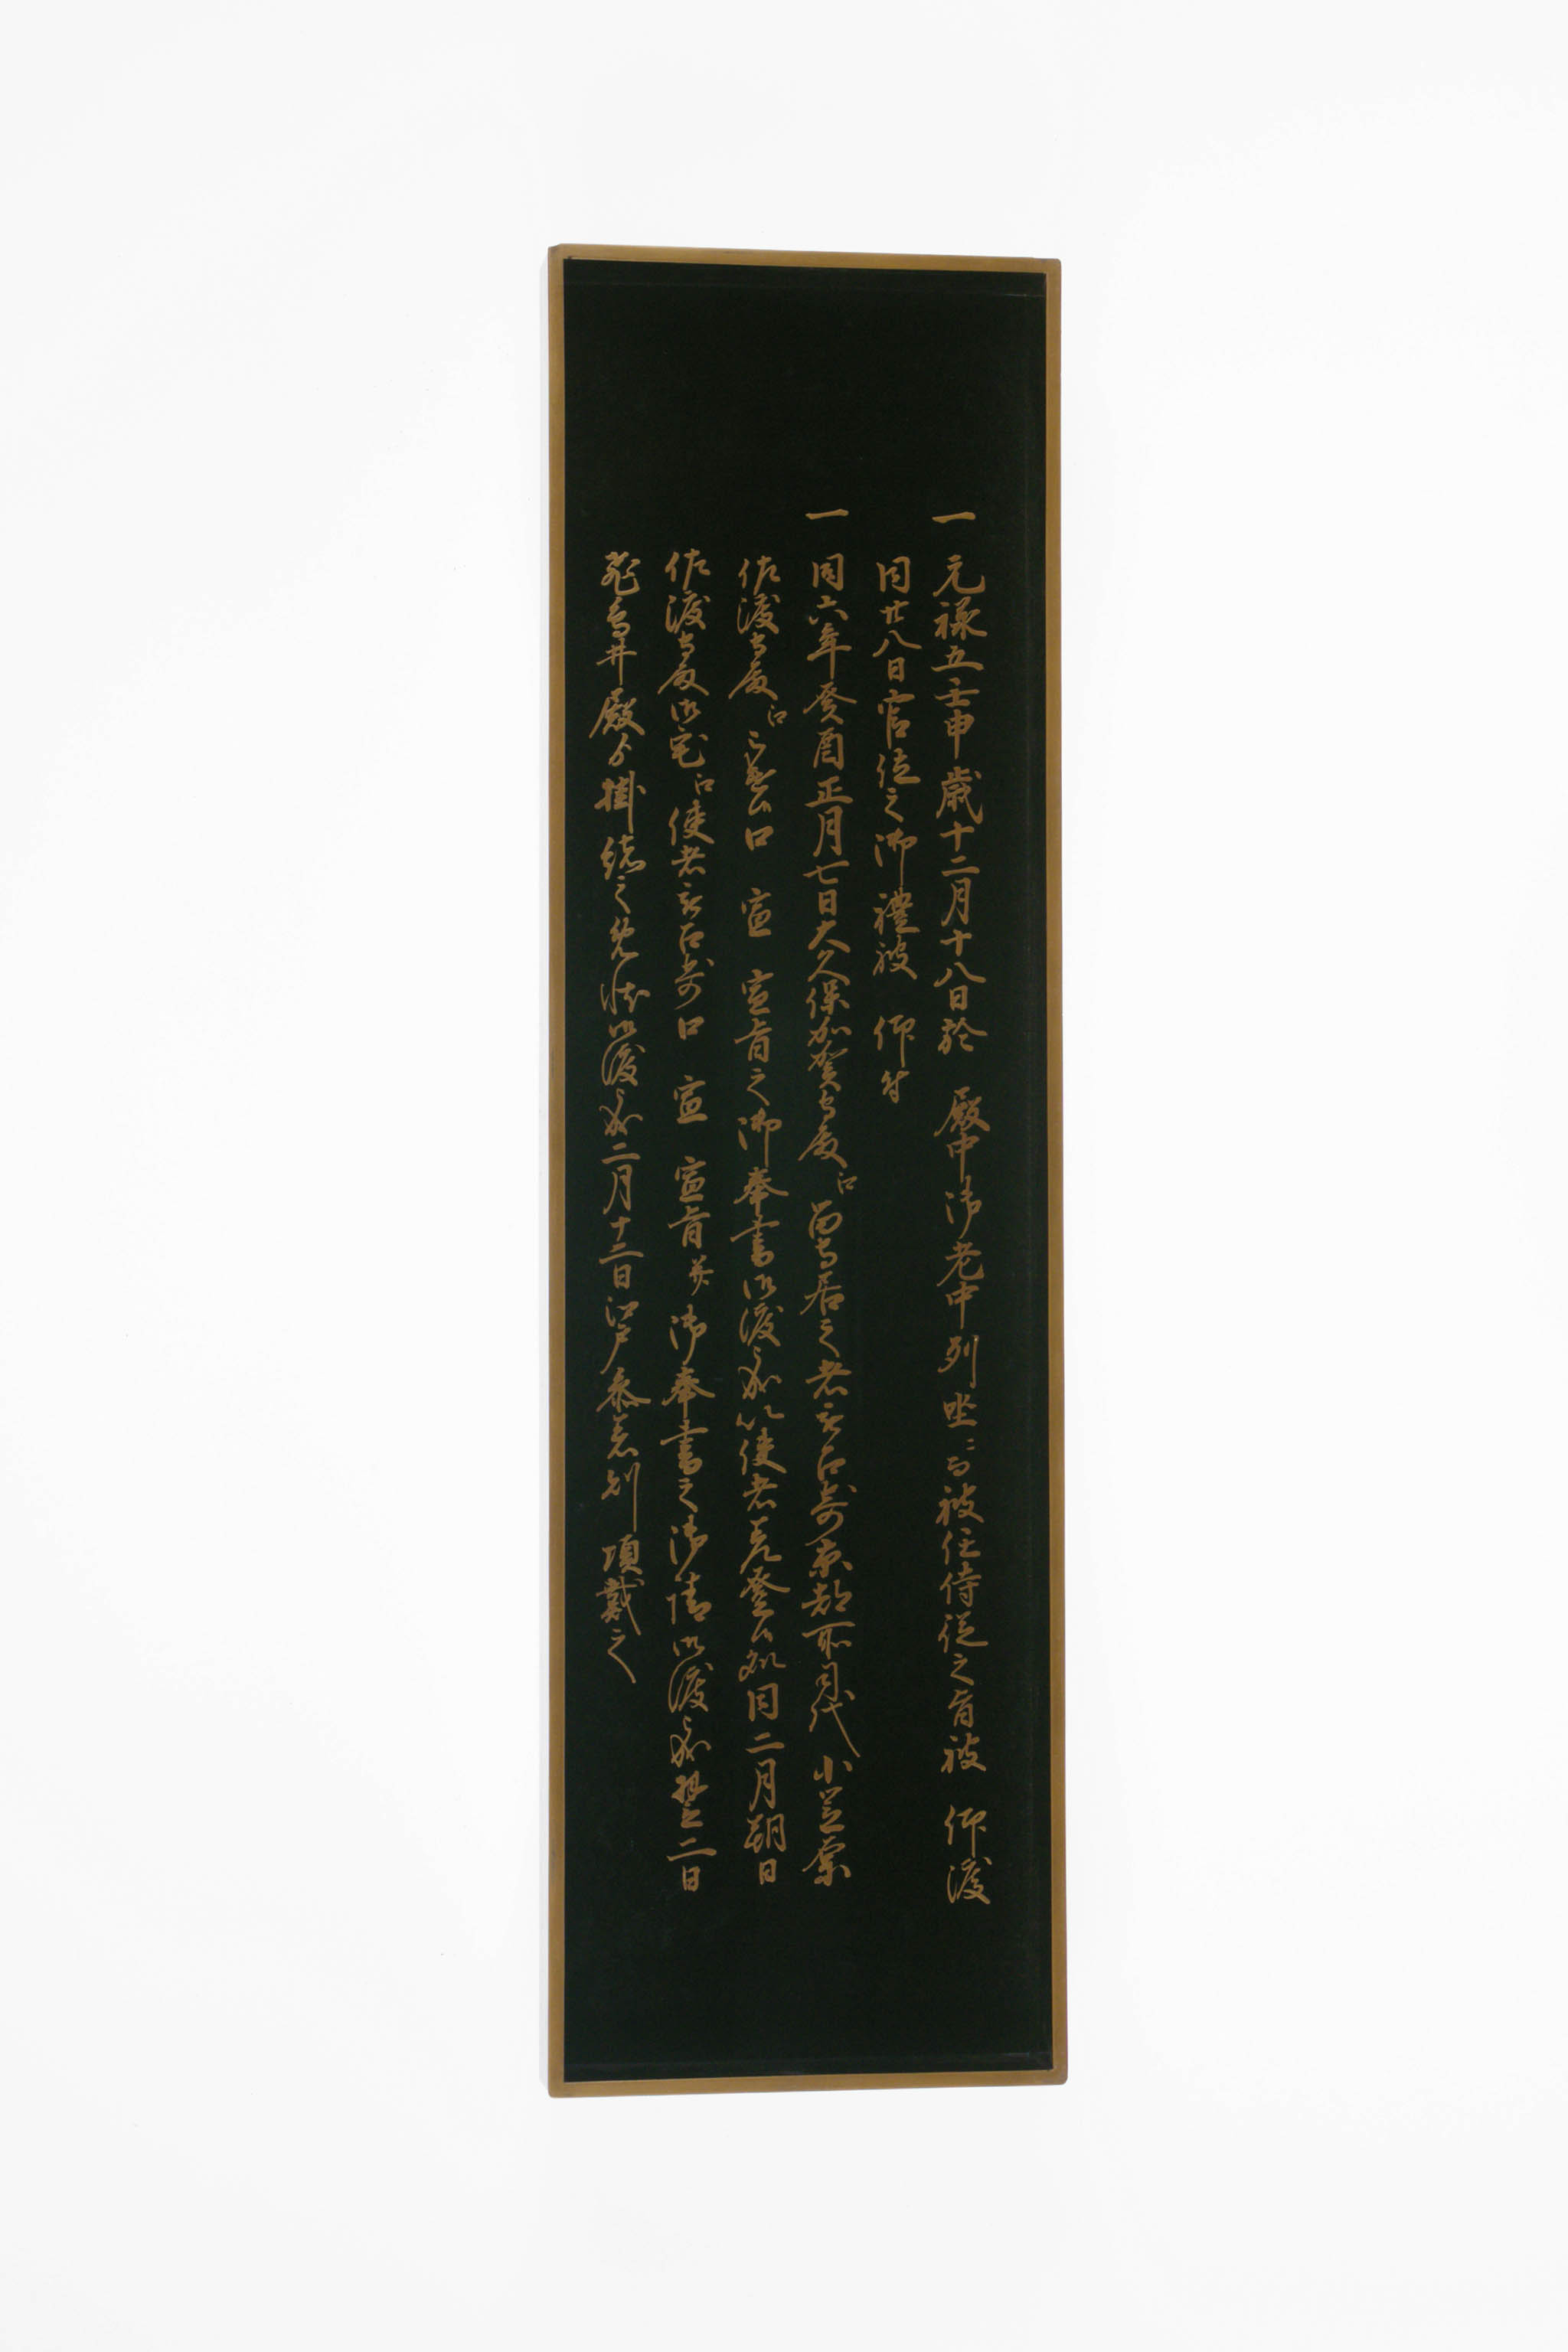 一 元禄五壬申歳十二月十八日於 殿中御老中列坐ニ而被任侍従之旨被 仰渡
同廿八日官位之御禮被 仰付
一 同六年癸酉正月七日大久保加賀守殿江留守居之者被召寄京都所司代小笠原
佐渡守殿江口 宣 宣旨之御奉書御渡以使者 同二月朔日
佐渡守殿御宅江使者被召寄口 宣 宣旨并御奉書之御請御渡 翌二日
飛鳥井殿ゟ掛緒之免状御渡 二月十二日江戸 頂戴之